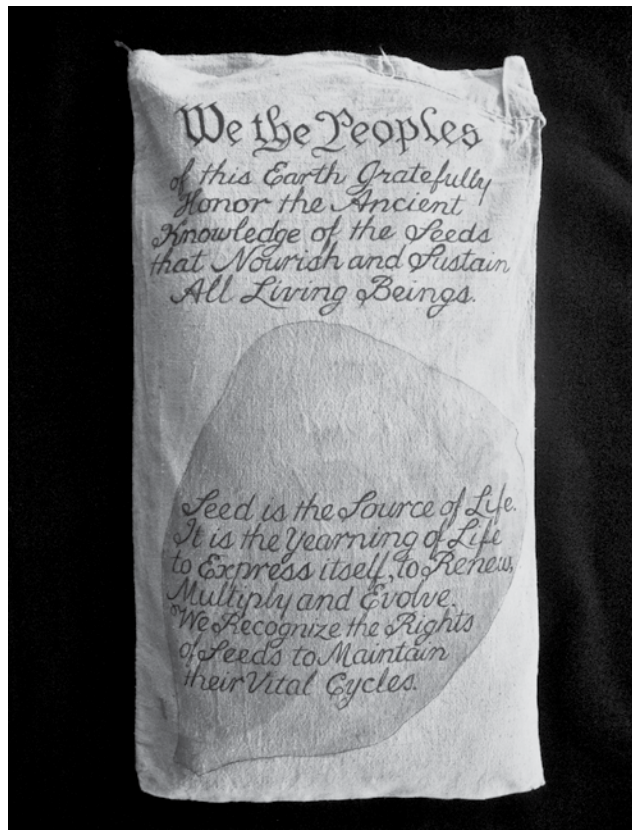 We the Peoples
of this Earth Gratefully
Honor the Ancient
Knowledge of the Seeds
that Nourish and Sustain
All Living Beings.
Seed is the Source of Life.
It is the Yearning of Life
to Express itself, to Renew,
Multiply and Evolve.
We Recognize the Rights
of Seeds to Maintain
their Vital Cycles.